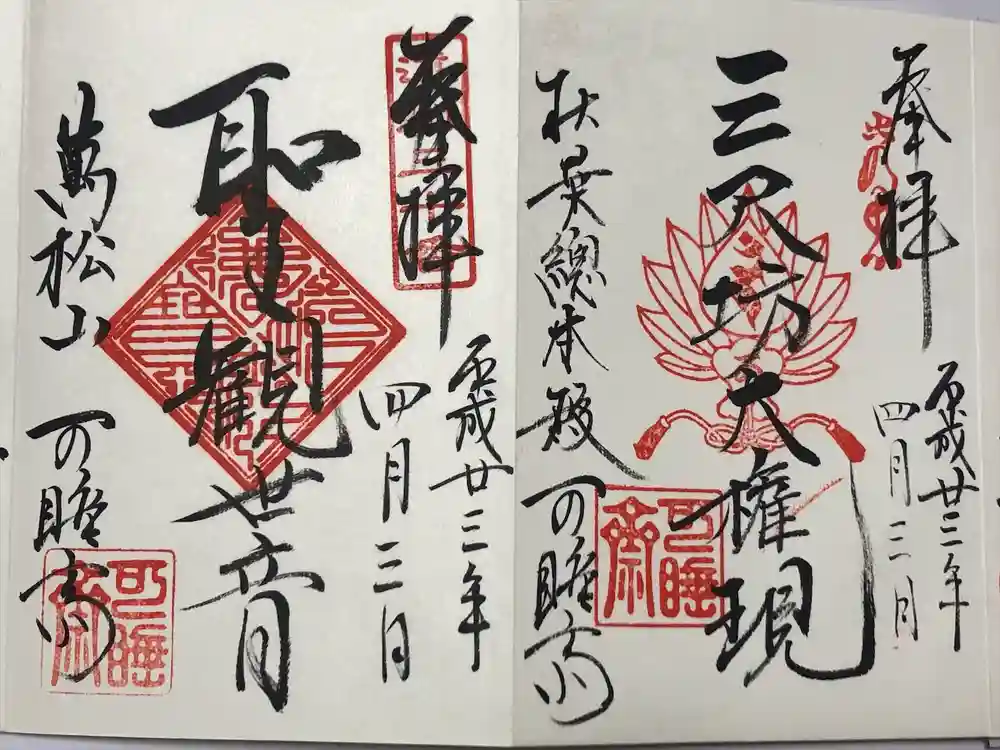 奉拝
平成廿三年
四月三日
三尺坊大權現
秋葉總本殿
可睡斎
可睡斎
奉拝
平成廿三年
四月三日
聖觀世音
萬松山
可睡斎
可睡斎